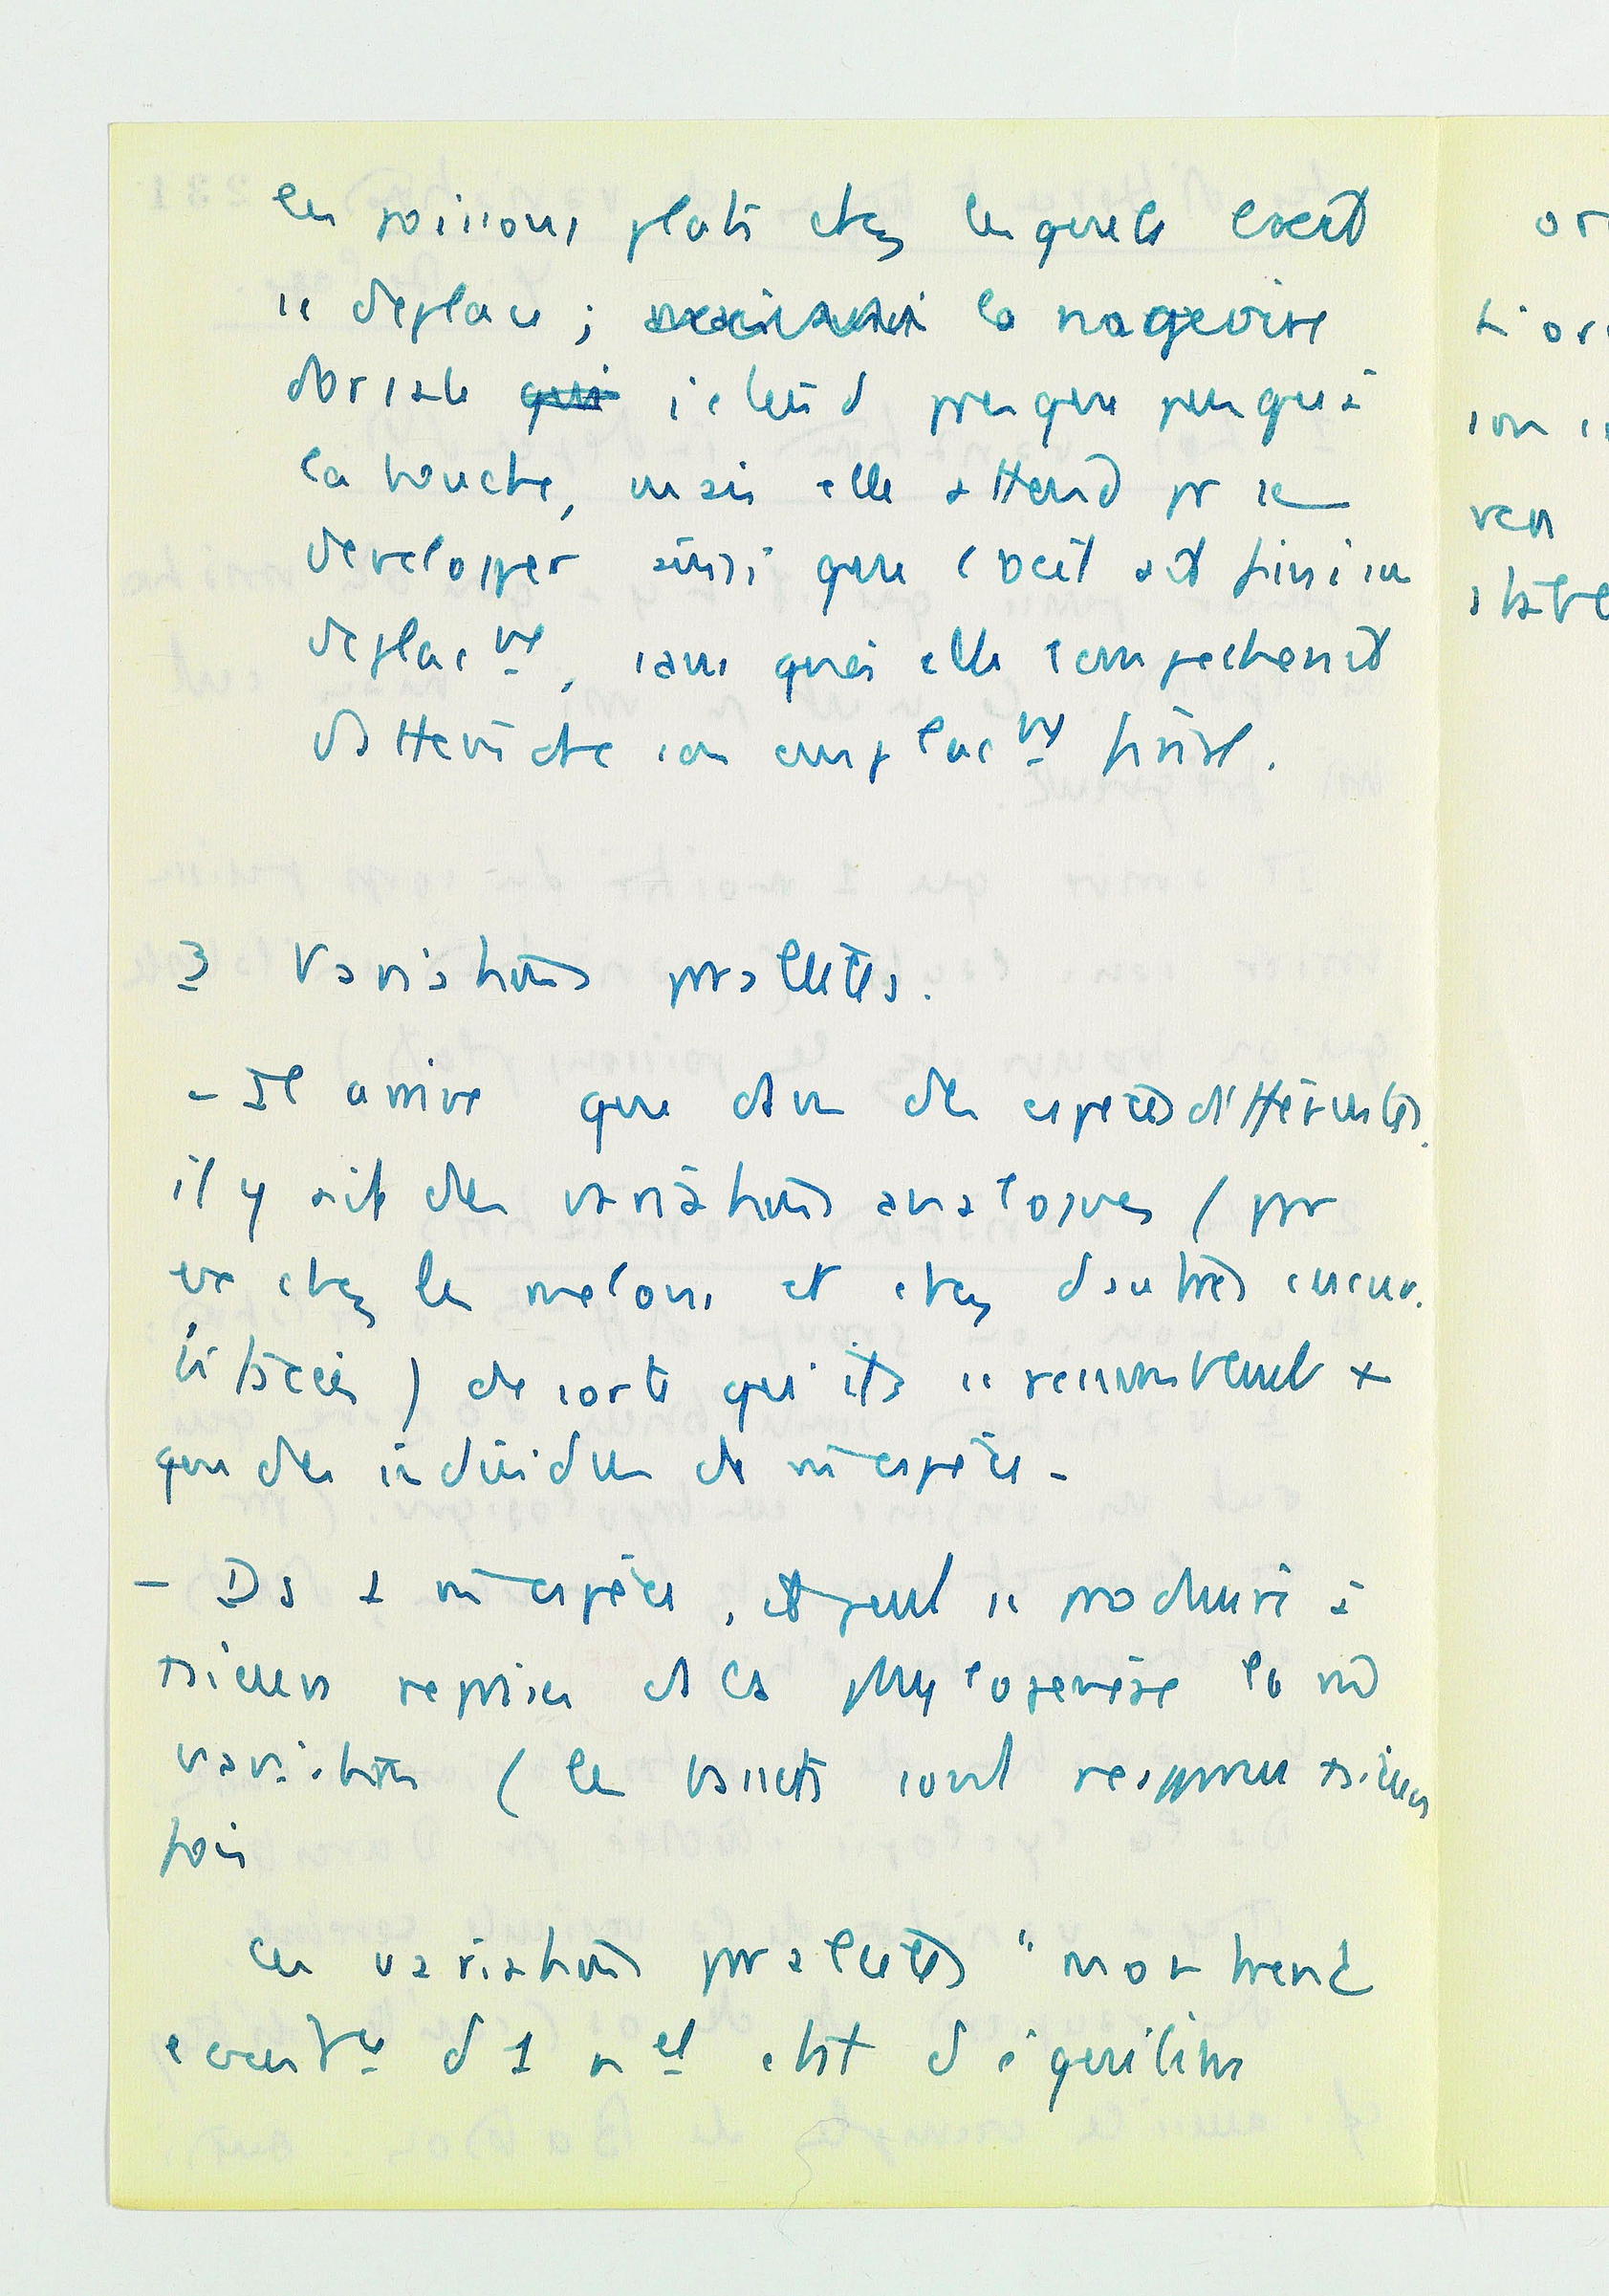 les poissons plats chez lesquels l'oeil
se déplace ; la nageoire
dorsale qui s'étend presque jusqu'à
la bouche, mais elle attend pr se
developper ainsi que l'oeil ait fini son
deplact, sans quoi elle l'empecherait
d'atteindre son emplact final.
3 Variations parallèles.
- Il arrive que dans des espèces différentes
il y ait des variations analogues (par
ex chez les melons et chez d'autres cucur
bitacées) de sorte qu'ils se ressemblent +
que des individus de m espèce -
- Ds 1 m espèce, il peut se produire à
reprises ds la phylogenèse la m
variation (les bassets sont réapparus
fois
Ces variations parallèles "montrent
d 1 nel état d'équilibre
or
son